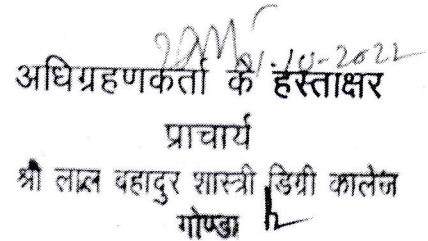 1.10-2022
अधिग्रहणकर्ता के हस्ताक्षर
प्राचार्य
श्री लाल बहादुर शास्त्री डिग्री कालेज
गोण्डा